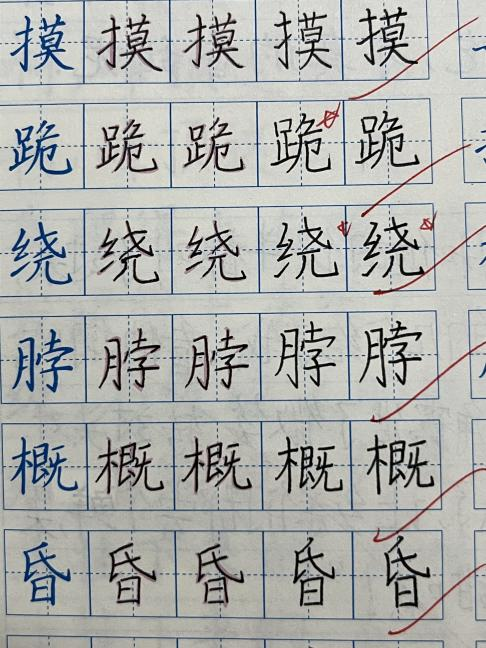 摸摸摸摸摸
跪跪跪跪跪
绕绕绕绕绕
脖脖脖脖脖
概概概概概
昏昏昏昏昏